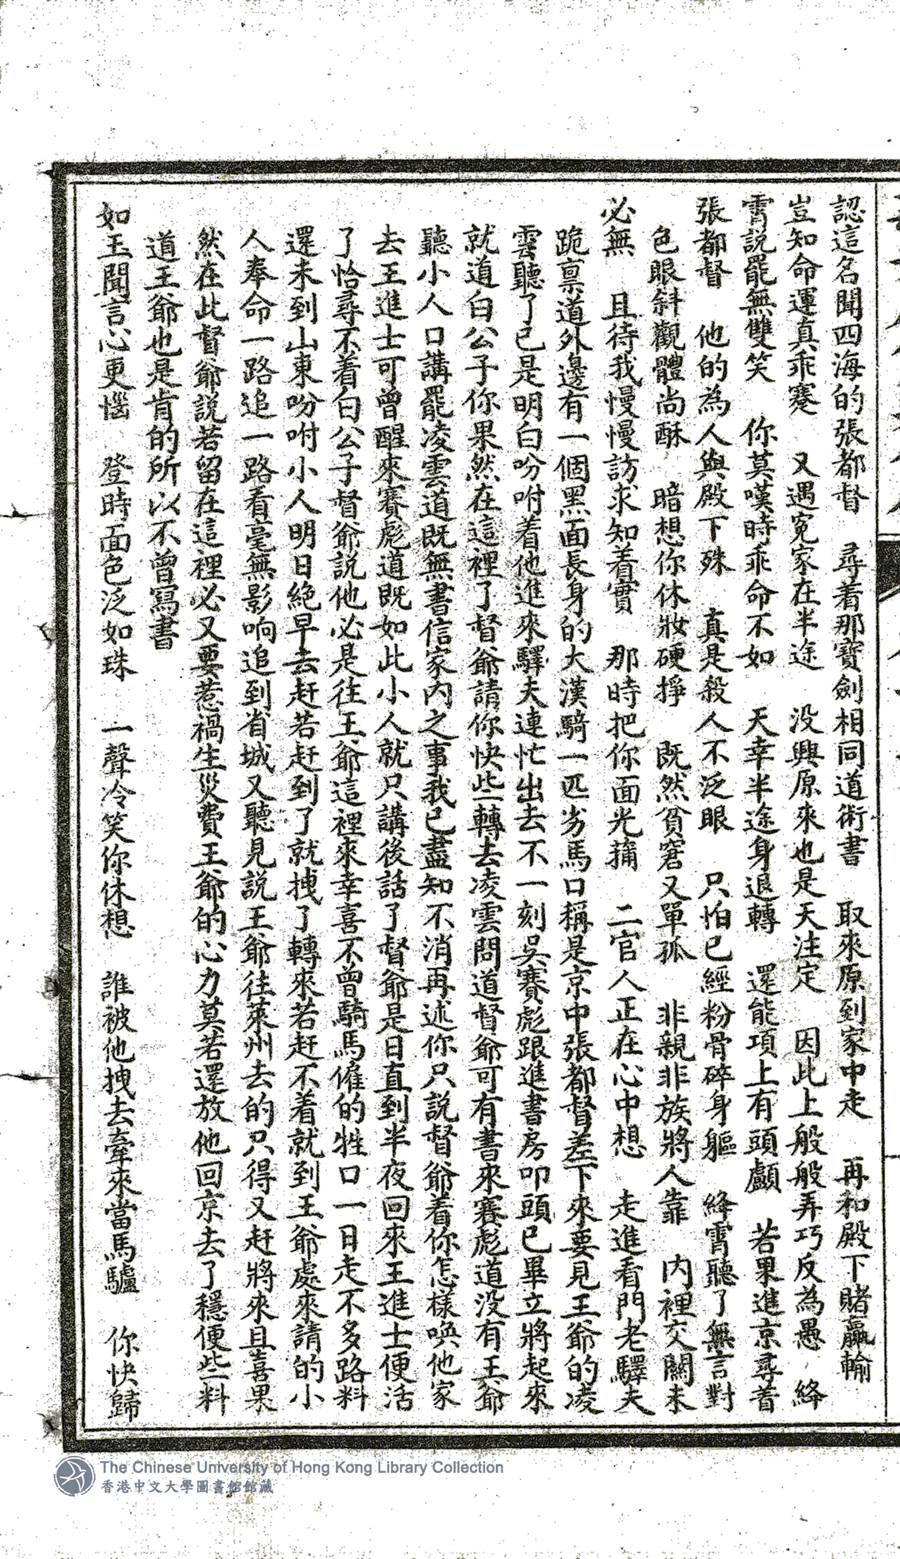 認這名聞四海的張都督　尋着那寶劍相同道術書　取來原到家中走　再和殿下賭贏輸
豈知命運真乖蹇　又遇冤家在半途　没興原來也是天注定　因此上般般弄巧反為愚　絳
霄說罷無雙笑　你莫嘆時乖命不如　天幸半途身退轉　還能項上有頭顱　若果進京尋着
張都督　他的為人與殿下殊　真是殺人不泛眼　只怕已經粉骨碎身軀　絳霄聽了無言對
色眼斜觀體尚酥　暗想你休妝硬掙　既然貧窘又單孤　非親非族將人靠　内裡交關未
必無　且待我慢慢訪求知着實　那時把你面光攎　二官人正在心中想　走進看門老驛夫
跪禀道外邊有一個黑面長身的大漢騎一匹劣馬口稱是京中張都督差下來要見王爺的凌
雲聽了已是明白吩咐着他進來驛夫連忙出去不一刻吳賽彪跟進書房叩頭已畢立將起來
就道白公子你果然在這裡了督爺請你快些轉去凌雲問道督爺可有書來賽彪道没有王爺
聽小人口講罷凌雲道既無書信家内之事我已盡知不消再述你只説督爺着你怎樣喚他家
去王進士可曾醒來賽彪道既如此小人就只講後話了督爺是日直到半夜回來王進士便活
了恰尋不着白公子督爺説他必是往王爺這裡來幸喜不曾騎馬僱的牲口一日走不多路料
還未到山東吩咐小人明日絶早去赶若赶到了就拽了轉來若赶不着就到王爺處來請的小
人奉命一路追一路看毫無影响追到省城又聽見説王爺往萊州去的只得又赶將來且喜果
然在此督爺説若留在這裡必又要惹禍生災費王爺的心力莫若還放他回京去了穩便些料
道王爺也是肯的所以不曾寫書
如玉聞言心更惱　登時面色泛如珠　一聲冷笑你休想　誰被他拽去牽來當馬驢　你快歸
The Chinese University of Hong Kong Library Collection
香港中文大學圖書館館藏